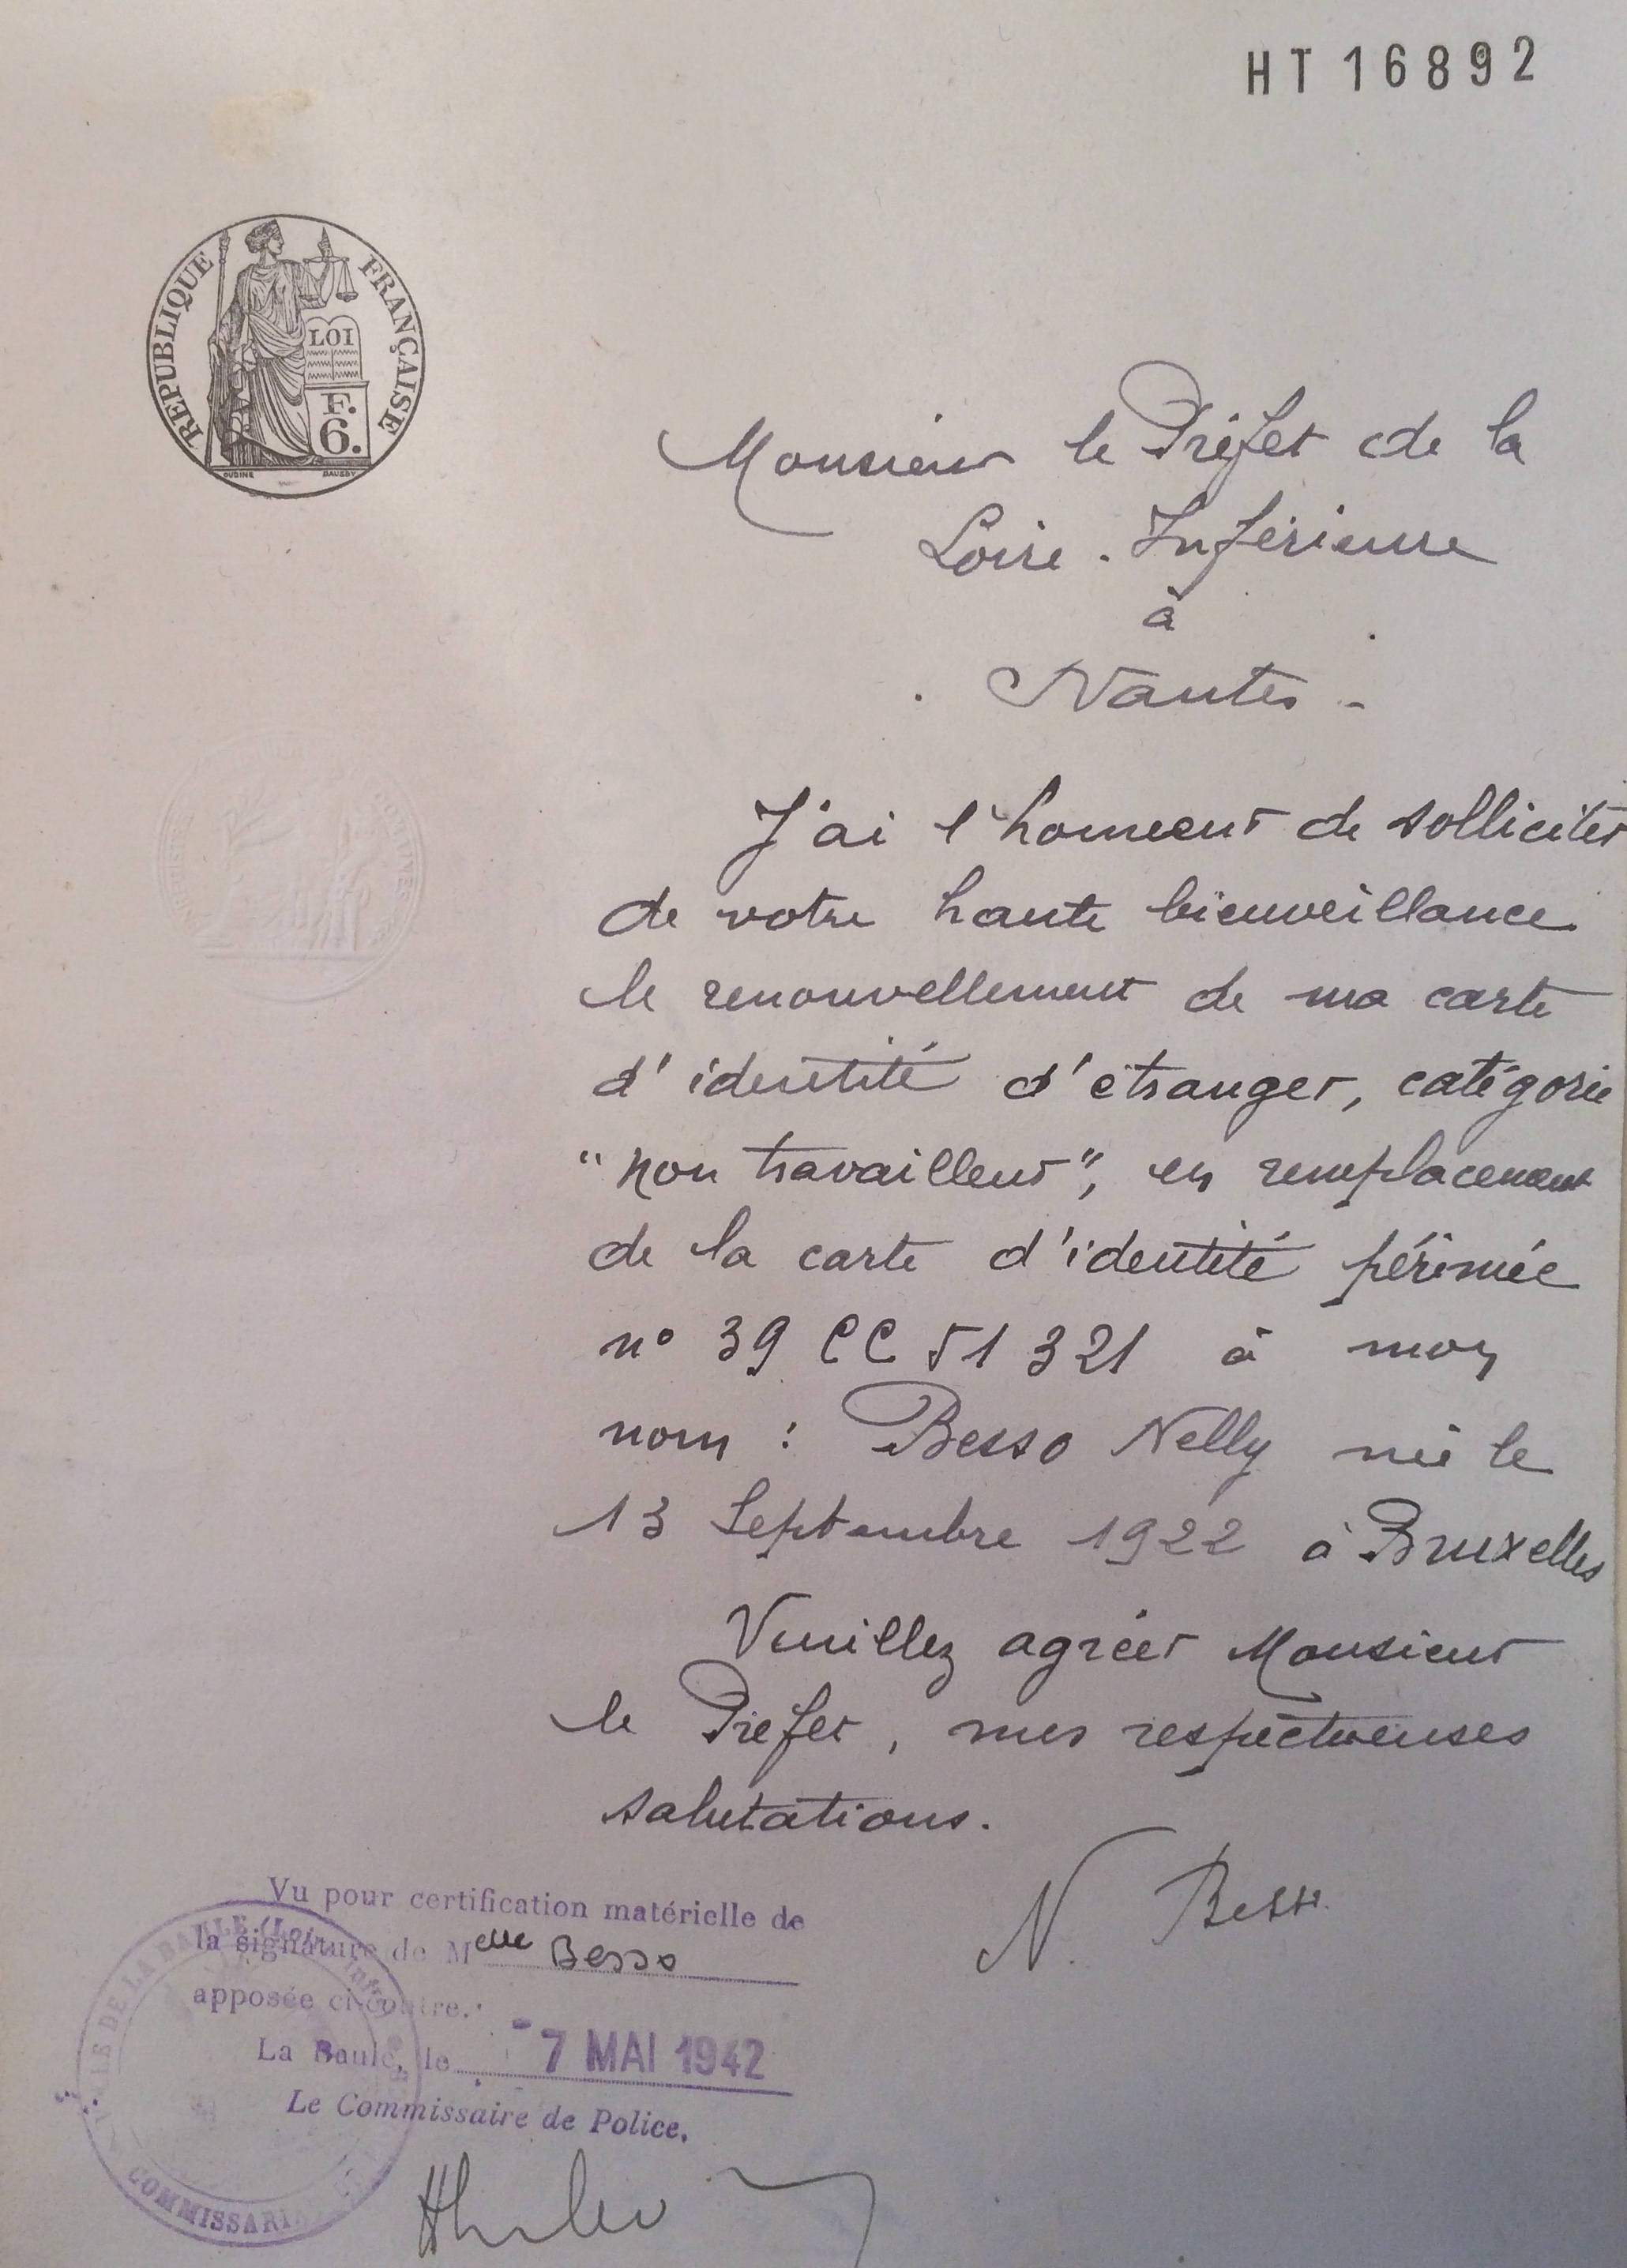 HT 16892
RÉPUBLIQUE FRANÇAISE
LOI
F.
6.
OUDINÉ
Monsieur le Préfet de la
Loire-Inférieure
à
Nantes -
J'ai l'honneur de solliciter
de votre haute bienveillance
le renouvellement de ma carte
d'identité d'étranger, catégorie
"non travailleur", en remplacement
de la carte d'identité périmée
n° 39 CC 51 321 à mon
nom : Besso Nelly née le
13 Septembre 1922 à Bruxelles
Veuillez agréer Monsieur
le Préfet, mes respectueuses
salutations.
N. Besso
Vu pour certification matérielle de
la signature de Melle Besso
apposée ci-contre.
La Baule, le - 7 MAI 1942
Le Commissaire de Police,
DE LA BAULE (Loire Infre)